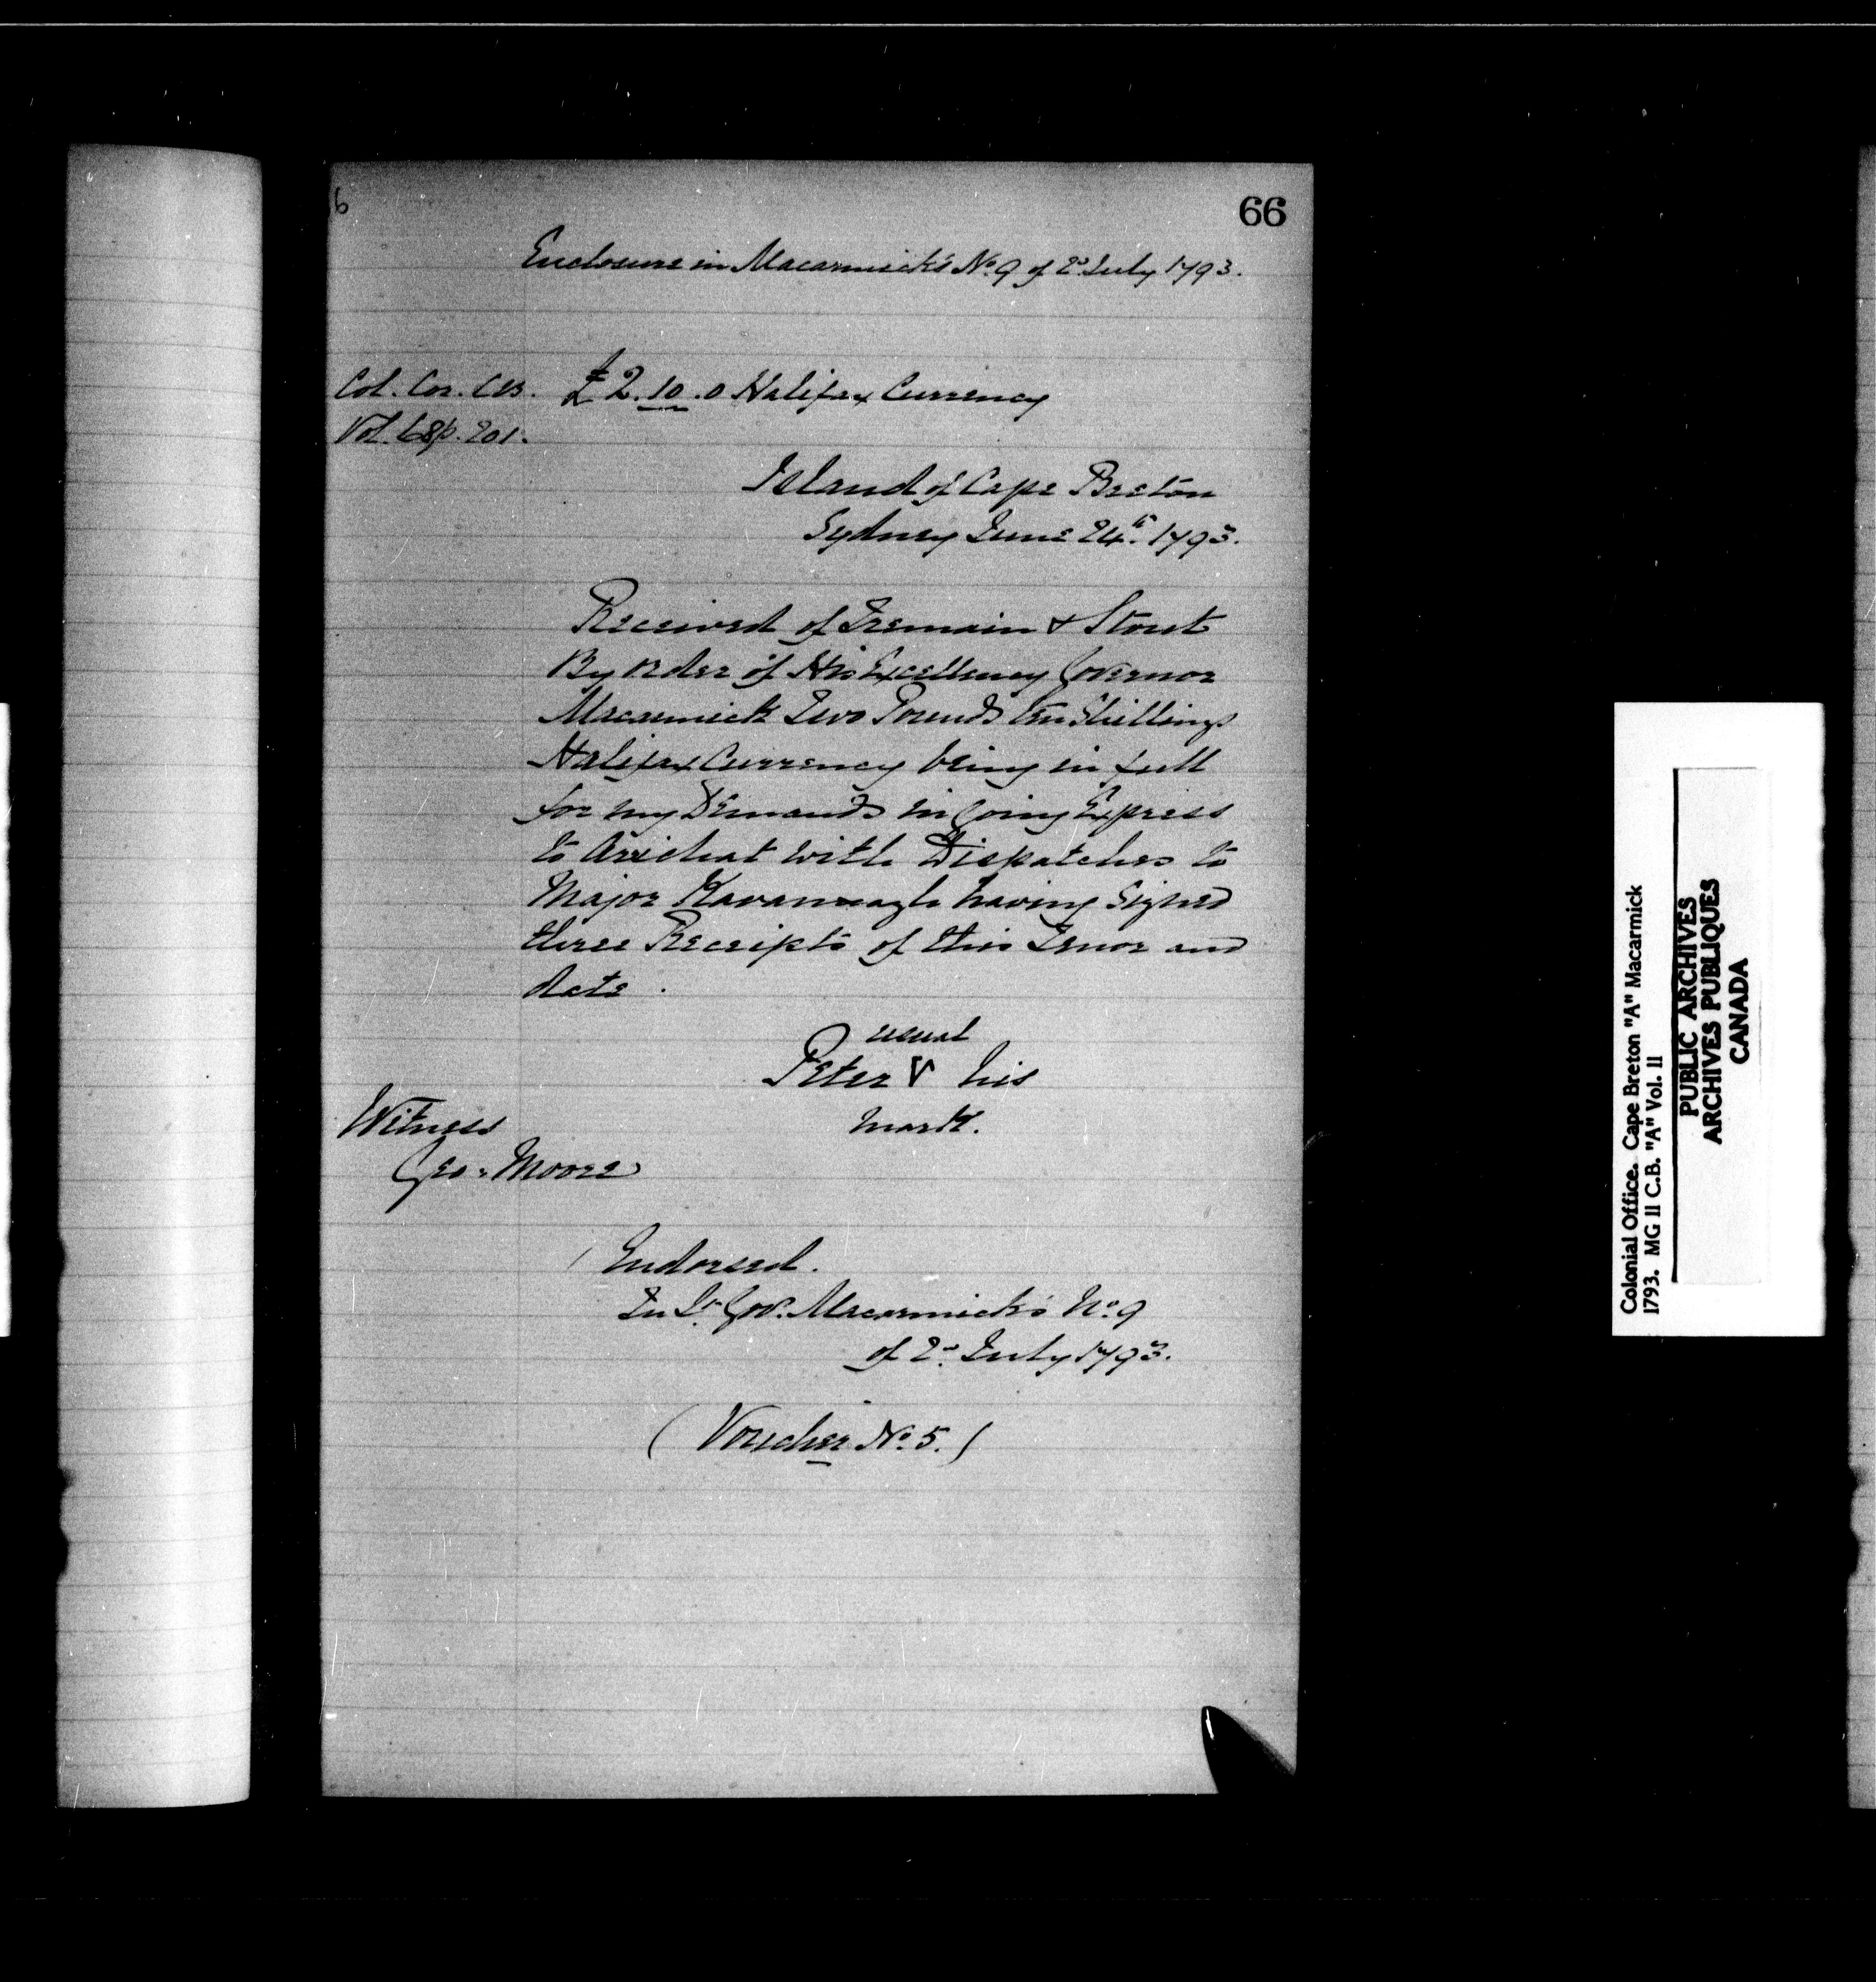 6
66
Enclosure in Macarmick's No. 9 of 2d. July 1793.
Col. Cor. C.B.
Vol. 68 p. 201.
£2.10.0 Halifax Currency
Island of Cape Breton
Sydney June 24th. 1793.
Received of Tremain & Stout
By order of His Excellency Governor
Macarmick Two Pounds Ten Shillings
Halifax Currency being in full
for my Demands in Going Express
to Arichat with Dispatches to
Major Kavannagh having Signed
three Receipts of this Tenor and
date.
usual
Peter V his
mark.
Witness
Geo. Moore
Endorsed.
In Lt. Gov. Macarmick's No. 9
of 2d. July 1793.
(Voucher No. 5.)
Colonial Office. Cape Breton "A" Macarmick
1793. MG 11 C.B. "A" Vol. 11
PUBLIC ARCHIVES
ARCHIVES PUBLIQUES
CANADA